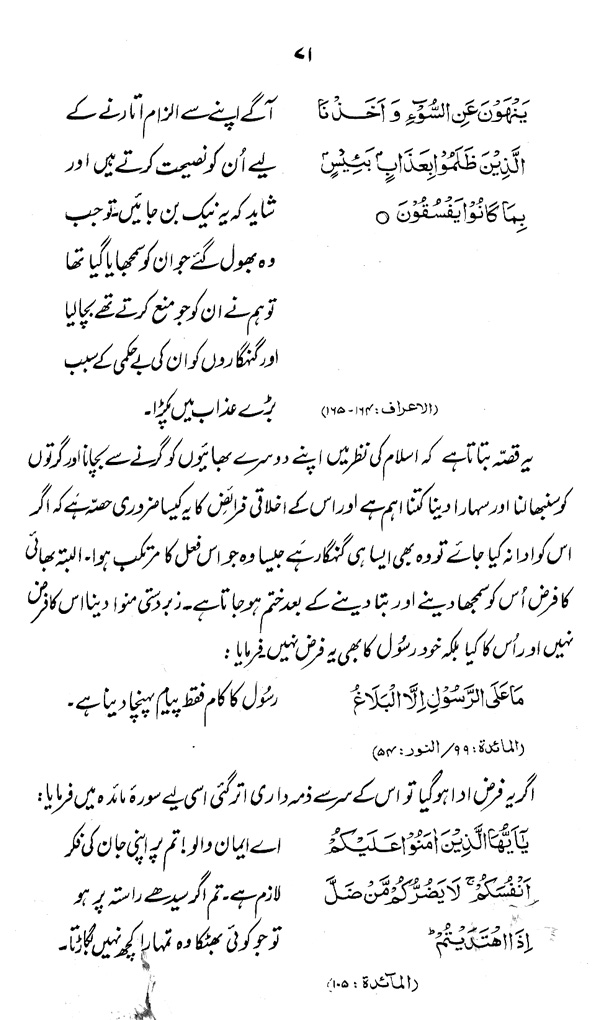 ۷۱
یَنْهَوْنَ عَنِ السُّوْٓءِ وَ اَخَذْنَا
الَّذِیْنَ ظَلَمُوْا بِعَذَابٍ بَئِیْسٍ
بِمَا كَانُوْا یَفْسُقُوْنَ ○
آگے اپنے سے الزام اتارنے کے
لیے اُن کو نصیحت کرتے ہیں اور
شاید کہ یہ نیک بن جائیں۔ تو جب
وہ بھول گئے جو ان کو سمجھایا گیا تھا
تو ہم نے ان کو جو منع کرتے تھے بچا لیا
اور گنہگاروں کو ان کی بے حکمی کے سبب
بڑے عذاب میں پکڑا۔
(الاعراف: ۱۶۴-۱۶۵)
یہ قصّہ بتاتا ہے کہ اسلام کی نظر میں اپنے دوسرے بھائیوں کو گرنے سے بچانا اور گرتوں
کو سنبھالنا اور سہارا دینا کتنا اہم ہے اور اس کے اخلاقی فرائض کا یہ کیسا ضروری حصّہ ہے کہ اگر
اس کو ادا نہ کیا جائے تو وہ بھی ایسا ہی گنہگار ہے جیسا وہ جو اس فعل کا مرتکب ہوا۔ البتہ بھائی
کا فرض اُس کو سمجھا دینے اور بتا دینے کے بعد ختم ہو جاتا ہے۔ زبردستی منوا دینا اس کا فرض
نہیں اور اُس کا کیا بلکہ خود رسُول کا بھی یہ فرض نہیں، فرمایا:
مَا عَلَی الرَّسُوْلِ اِلَّا الْبَلَاغُ
رسُول کا کام فقط پیام پہنچا دینا ہے۔
(المائدۃ: ۹۹/ النور: ۵۴)
اگر یہ فرض ادا ہو گیا تو اس کے سر سے ذمہ داری اتر گئی اسی لیے سورۂ مائدہ میں فرمایا:
یٰٓاَیُّهَا الَّذِیْنَ اٰمَنُوْا عَلَیْكُمْ
اَنْفُسَكُمْ ۚ لَا یَضُرُّكُمْ مَّنْ ضَلَّ
اِذَا اهْتَدَیْتُمْ ؕ
اے ایمان والو! تم پر اپنی جان کی فکر
لازم ہے۔ تم اگر سیدھے راستہ پر ہو
تو جو کوئی بھٹکا وہ تمہارا کچھ نہیں بگاڑتا۔
(المآئدۃ: ۱۰۵)